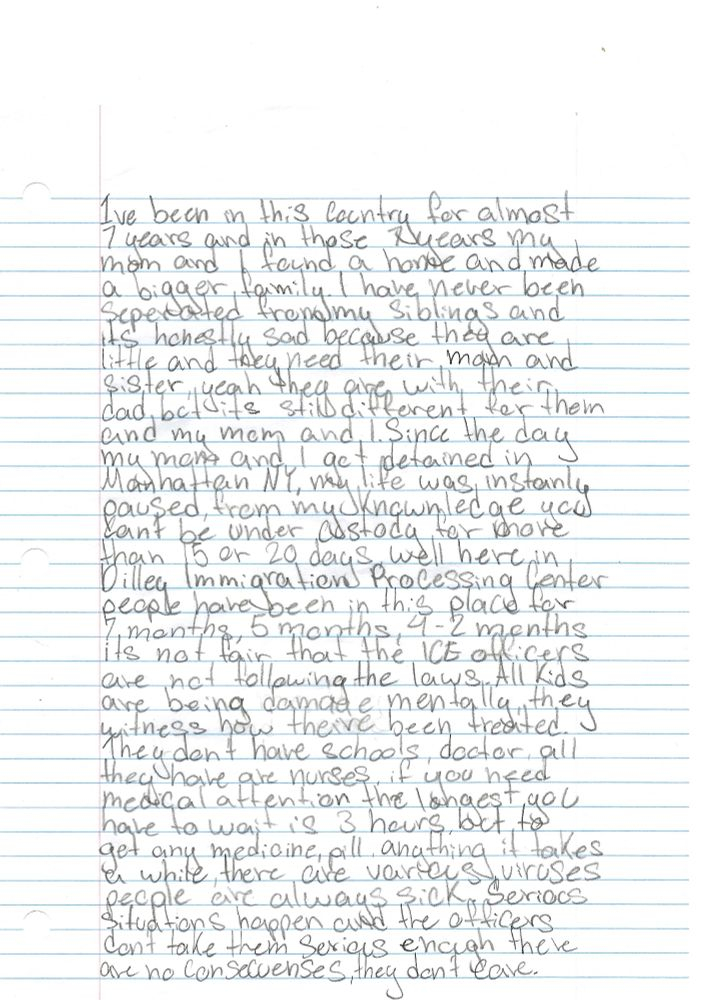 Ive been in this Country for almost
7 years and in those years my
mom and I found a home and made
a bigger family. I have never been
Seperated from my siblings and
its honestly sad because they are
little and they need their mom and
sister, yeah they are with their
dad, but its still different for them
and my mom and I. Since the day
my mom and I got detained in
Manhattan NY, my life was instanly
paused, from my knownledge you
cant be under custody for more
than 15 or 20 days well here in
Dilley Immigration Processing Center
people have been in this place for
7 months, 5 months, 4-2 months
its not fair that the ICE officers
are not following the laws. All Kids
are being damage mentally, they
witness how theire been treated.
They don't have schools, doctor, all
they have are nurses, if you need
medical attention the longest you
have to wait is 3 hours, but to
get any medicine, pill, anything it takes
a while, there are various viruses
people are always sick. Serious
situations happen and the officers
dont take them serious enough there
are no consecuenses, they don't care.